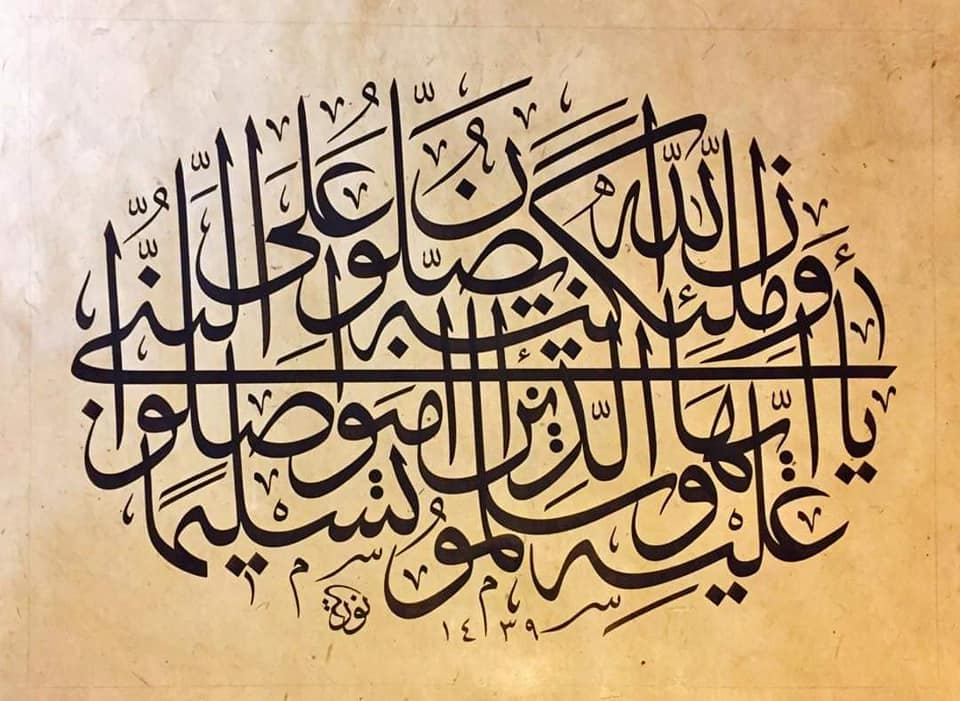 إن الله وملئكته يصلون على النبى
يا أيها الذين امنوا صلوا
عليه وسلموا تسليما
نورية
١٤٣٩